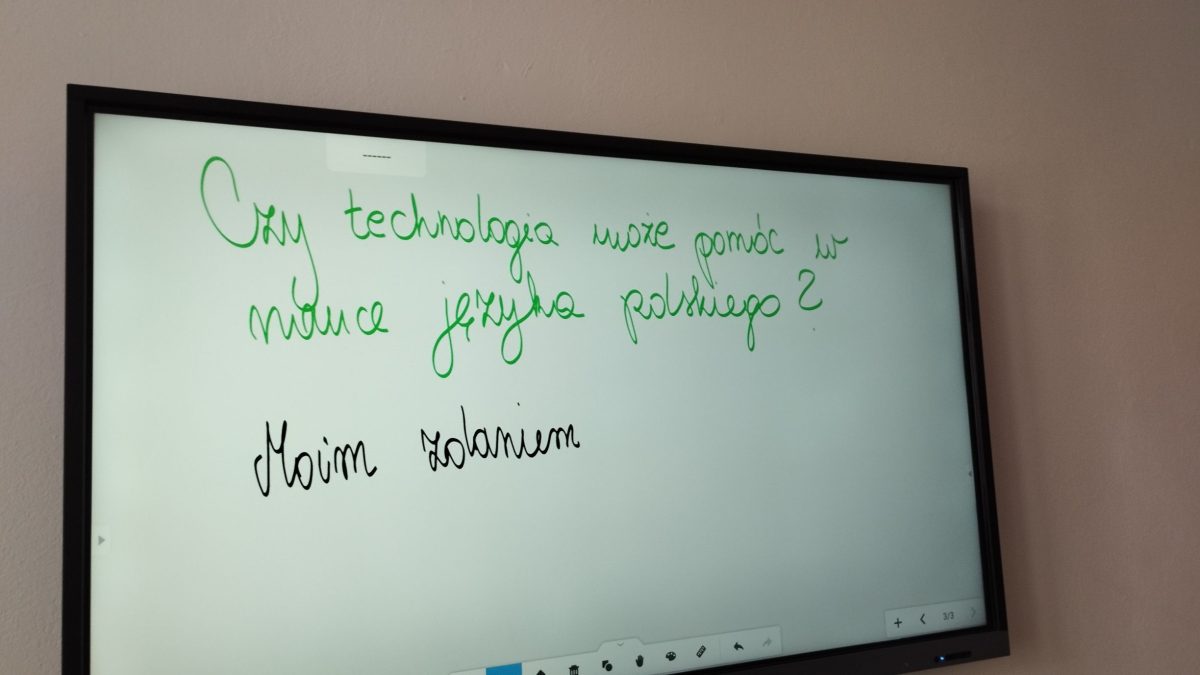 ------
Czy technologia może pomóc w
nauce języka polskiego?
Moim zdaniem
3/3